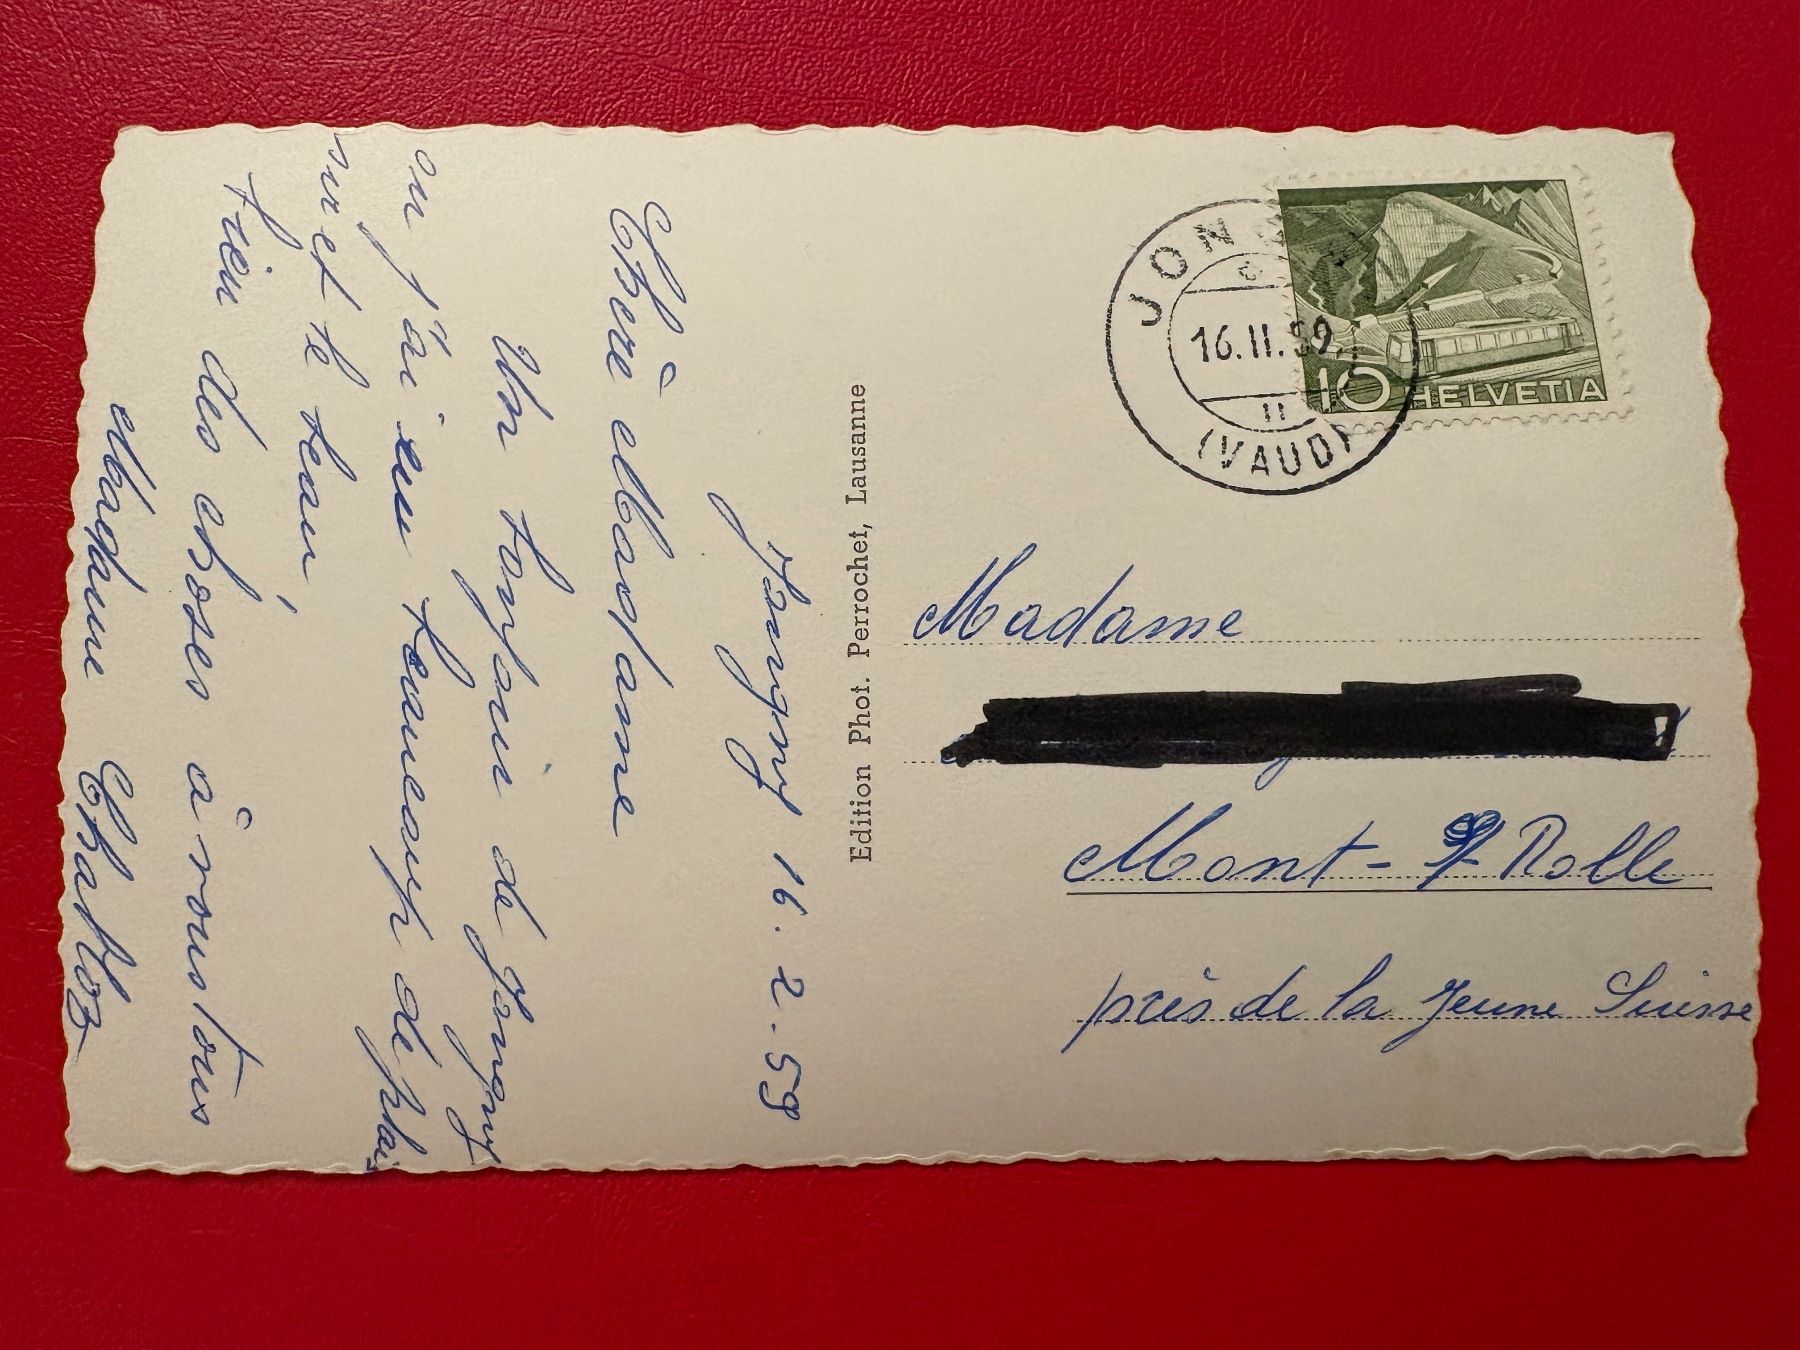 Jongny 16.2.59
Chère Madame
Un bonjour de Jongny
ou j'ai eu beaucoup de plai
sir et te beau,
bien des choses à vous tous
Madame Chattoz
Edition Phot. Perrochet, Lausanne
JON
16.II.59
(VAUD)
10 HELVETIA
Madame
Mont-s/Rolle
près de la Jeune Suisse